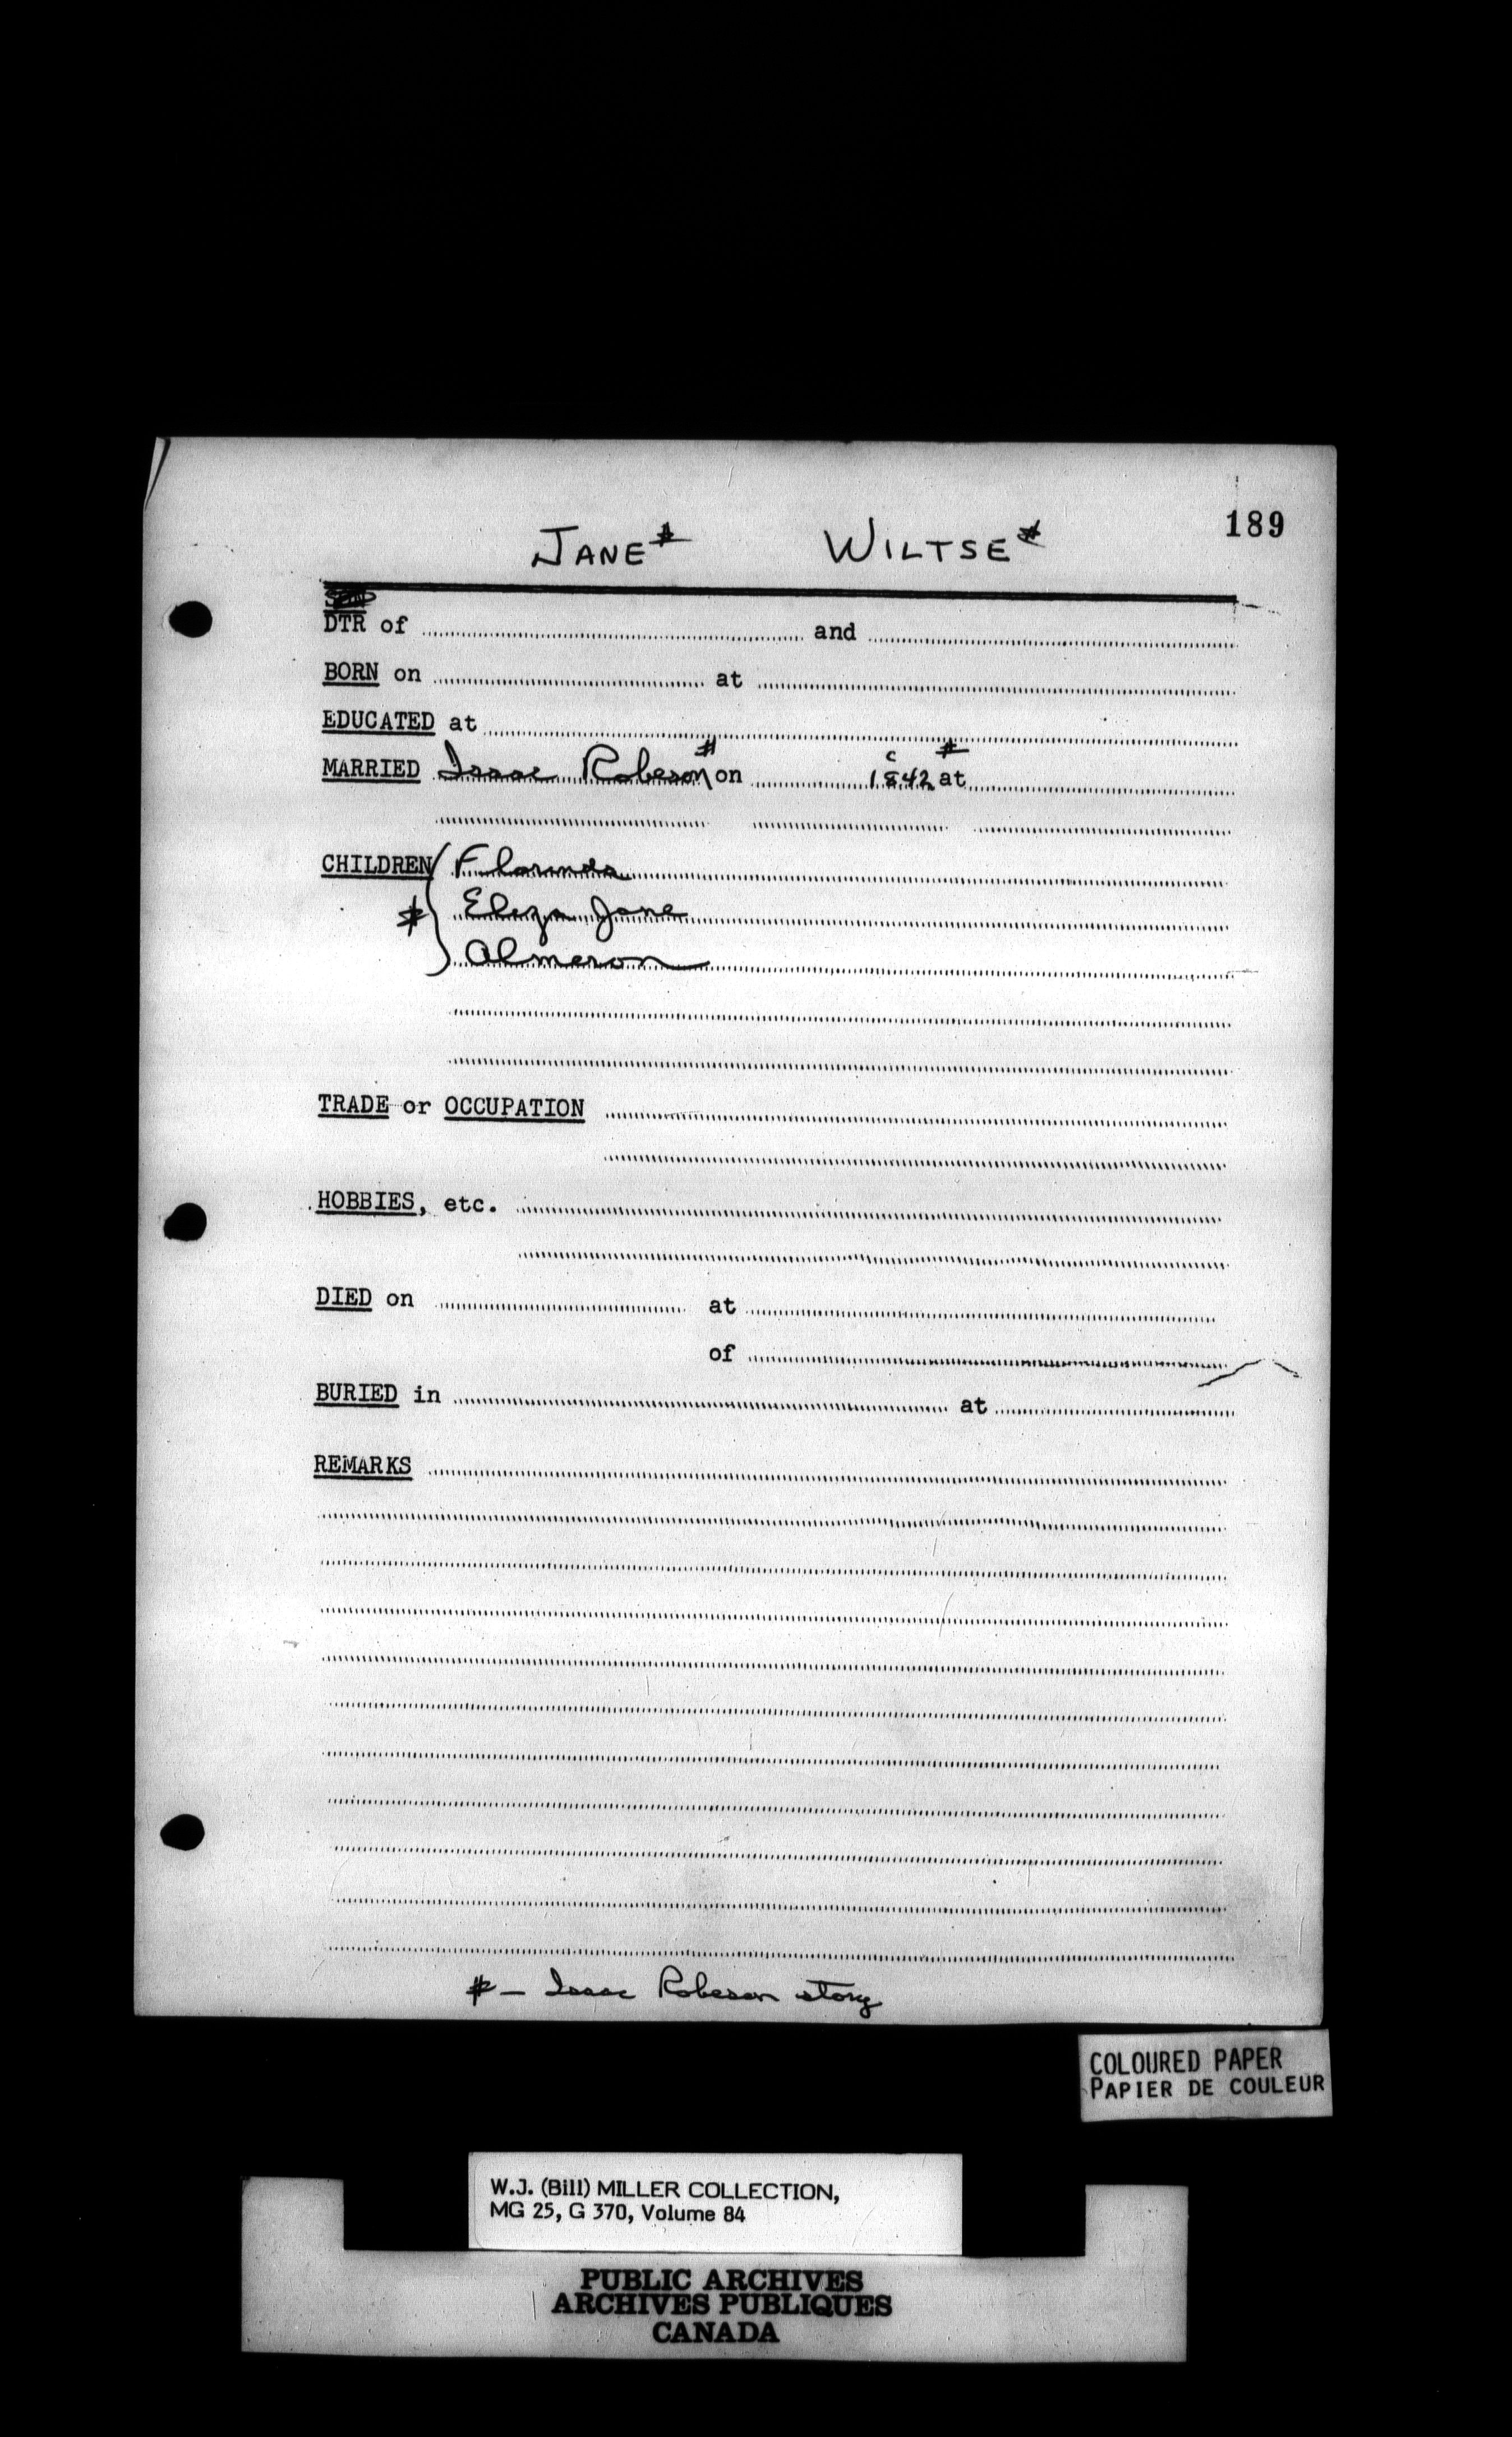 189
JANE # WILTSE #
SON
DTR of ........ and ........
BORN on ........ at ........
EDUCATED at ........
MARRIED Isaac Robeson # on ........ c 1842 # at ........
CHILDREN ( Florinda
# Eliza Jane
Almeron
TRADE or OCCUPATION ........
HOBBIES, etc. ........
DIED on ........ at ........
of ........
BURIED in ........ at ........
REMARKS ........
# – Isaac Robeson story
COLOURED PAPER
PAPIER DE COULEUR
W.J. (Bill) MILLER COLLECTION,
MG 25, G 370, Volume 84
PUBLIC ARCHIVES
ARCHIVES PUBLIQUES
CANADA